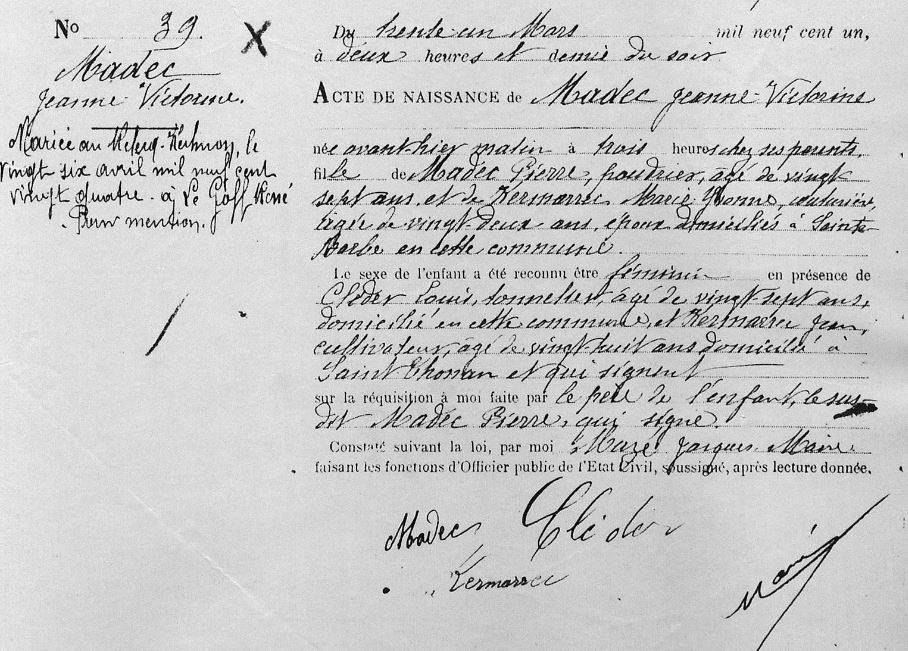 No 39.
Madec
Jeanne Victorine.
Mariée au Relecq-Kerhuon, le
vingt six avril mil neuf cent
vingt quatre. à Le Goff René
Pour mention.
Du trente un Mars mil neuf cent un,
à deux heures et demie du soir
ACTE DE NAISSANCE de Madec Jeanne Victorine
née avant hier matin à trois heures chez ses parents,
fille de Madec Pierre, poudrier, âgé de vingt
sept ans, et de Kermarrec Marie Yvonne, couturière,
âgée de vingt-deux ans, époux domiciliés à Sainte
Barbe en cette commune.
Le sexe de l'enfant a été reconnu être féminin en présence de
Cléder Louis, tonnelier, âgé de vingt-sept ans,
domicilié en cette commune, et Kermarrec Jean,
cultivateur, âgé de vingt huit ans domicilié à
Saint Thonan et qui signent
sur la réquisition à moi faite par le père de l'enfant, le sus-
dit Madec Pierre, qui signe.
Constaté suivant la loi, par moi Mazé Jacques Maire
faisant les fonctions d'Officier public de l'Etat Civil, soussigné, après lecture donnée.
Madec Cléder
Kermarrec
Mazé